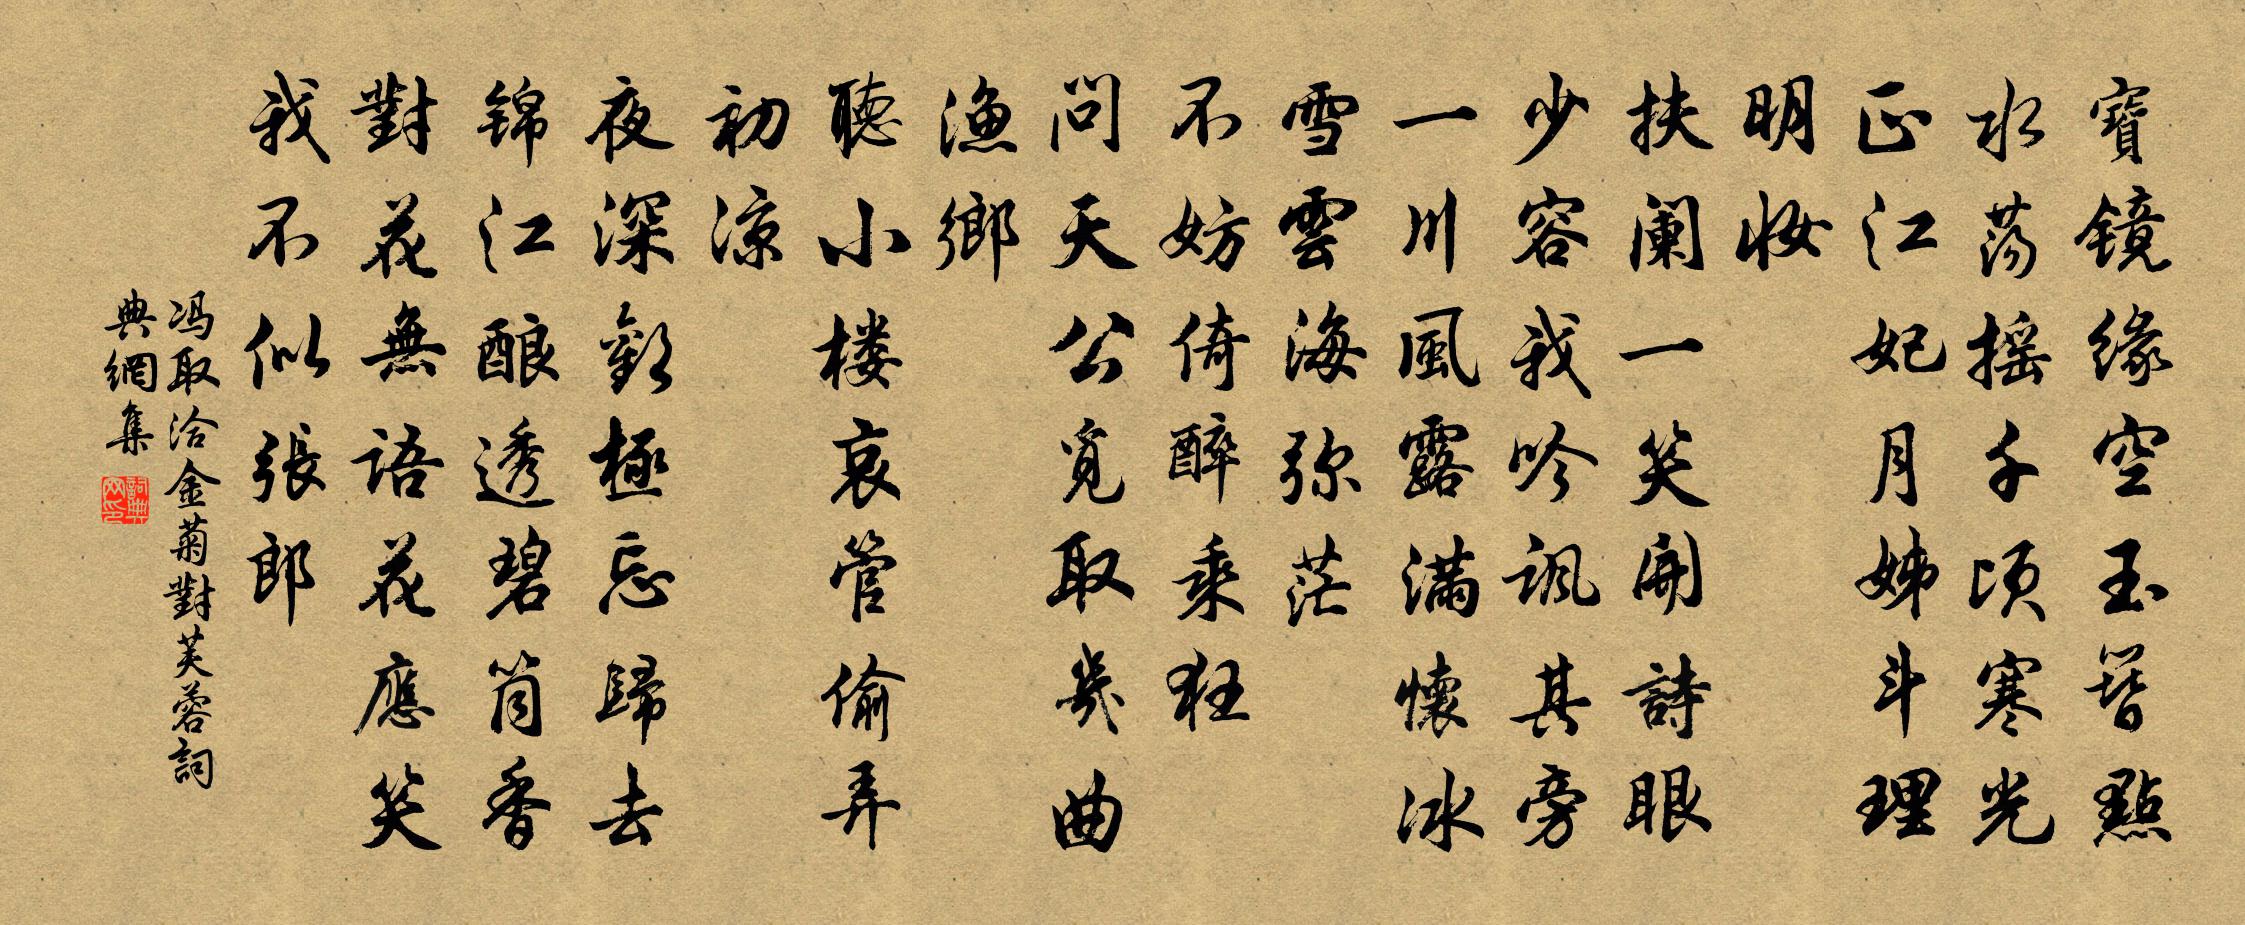 寶鏡緣空玉簪點
水蕩摇千頃寒光
正江妃月姊斗理
明妝
扶阑一笑開詩眼
少容我吟諷其旁
一川風露滿懷冰
雪雲海弥茫
不妨倚醉乘狂
問天公覓取幾曲
漁鄉
聽小楼哀管偷弄
初凉
夜深歡極忘歸去
锦江酿透碧筒香
對花無語花應笑
我不似張郎
冯取洽金菊對芙蓉詞
典網集
詞典网印